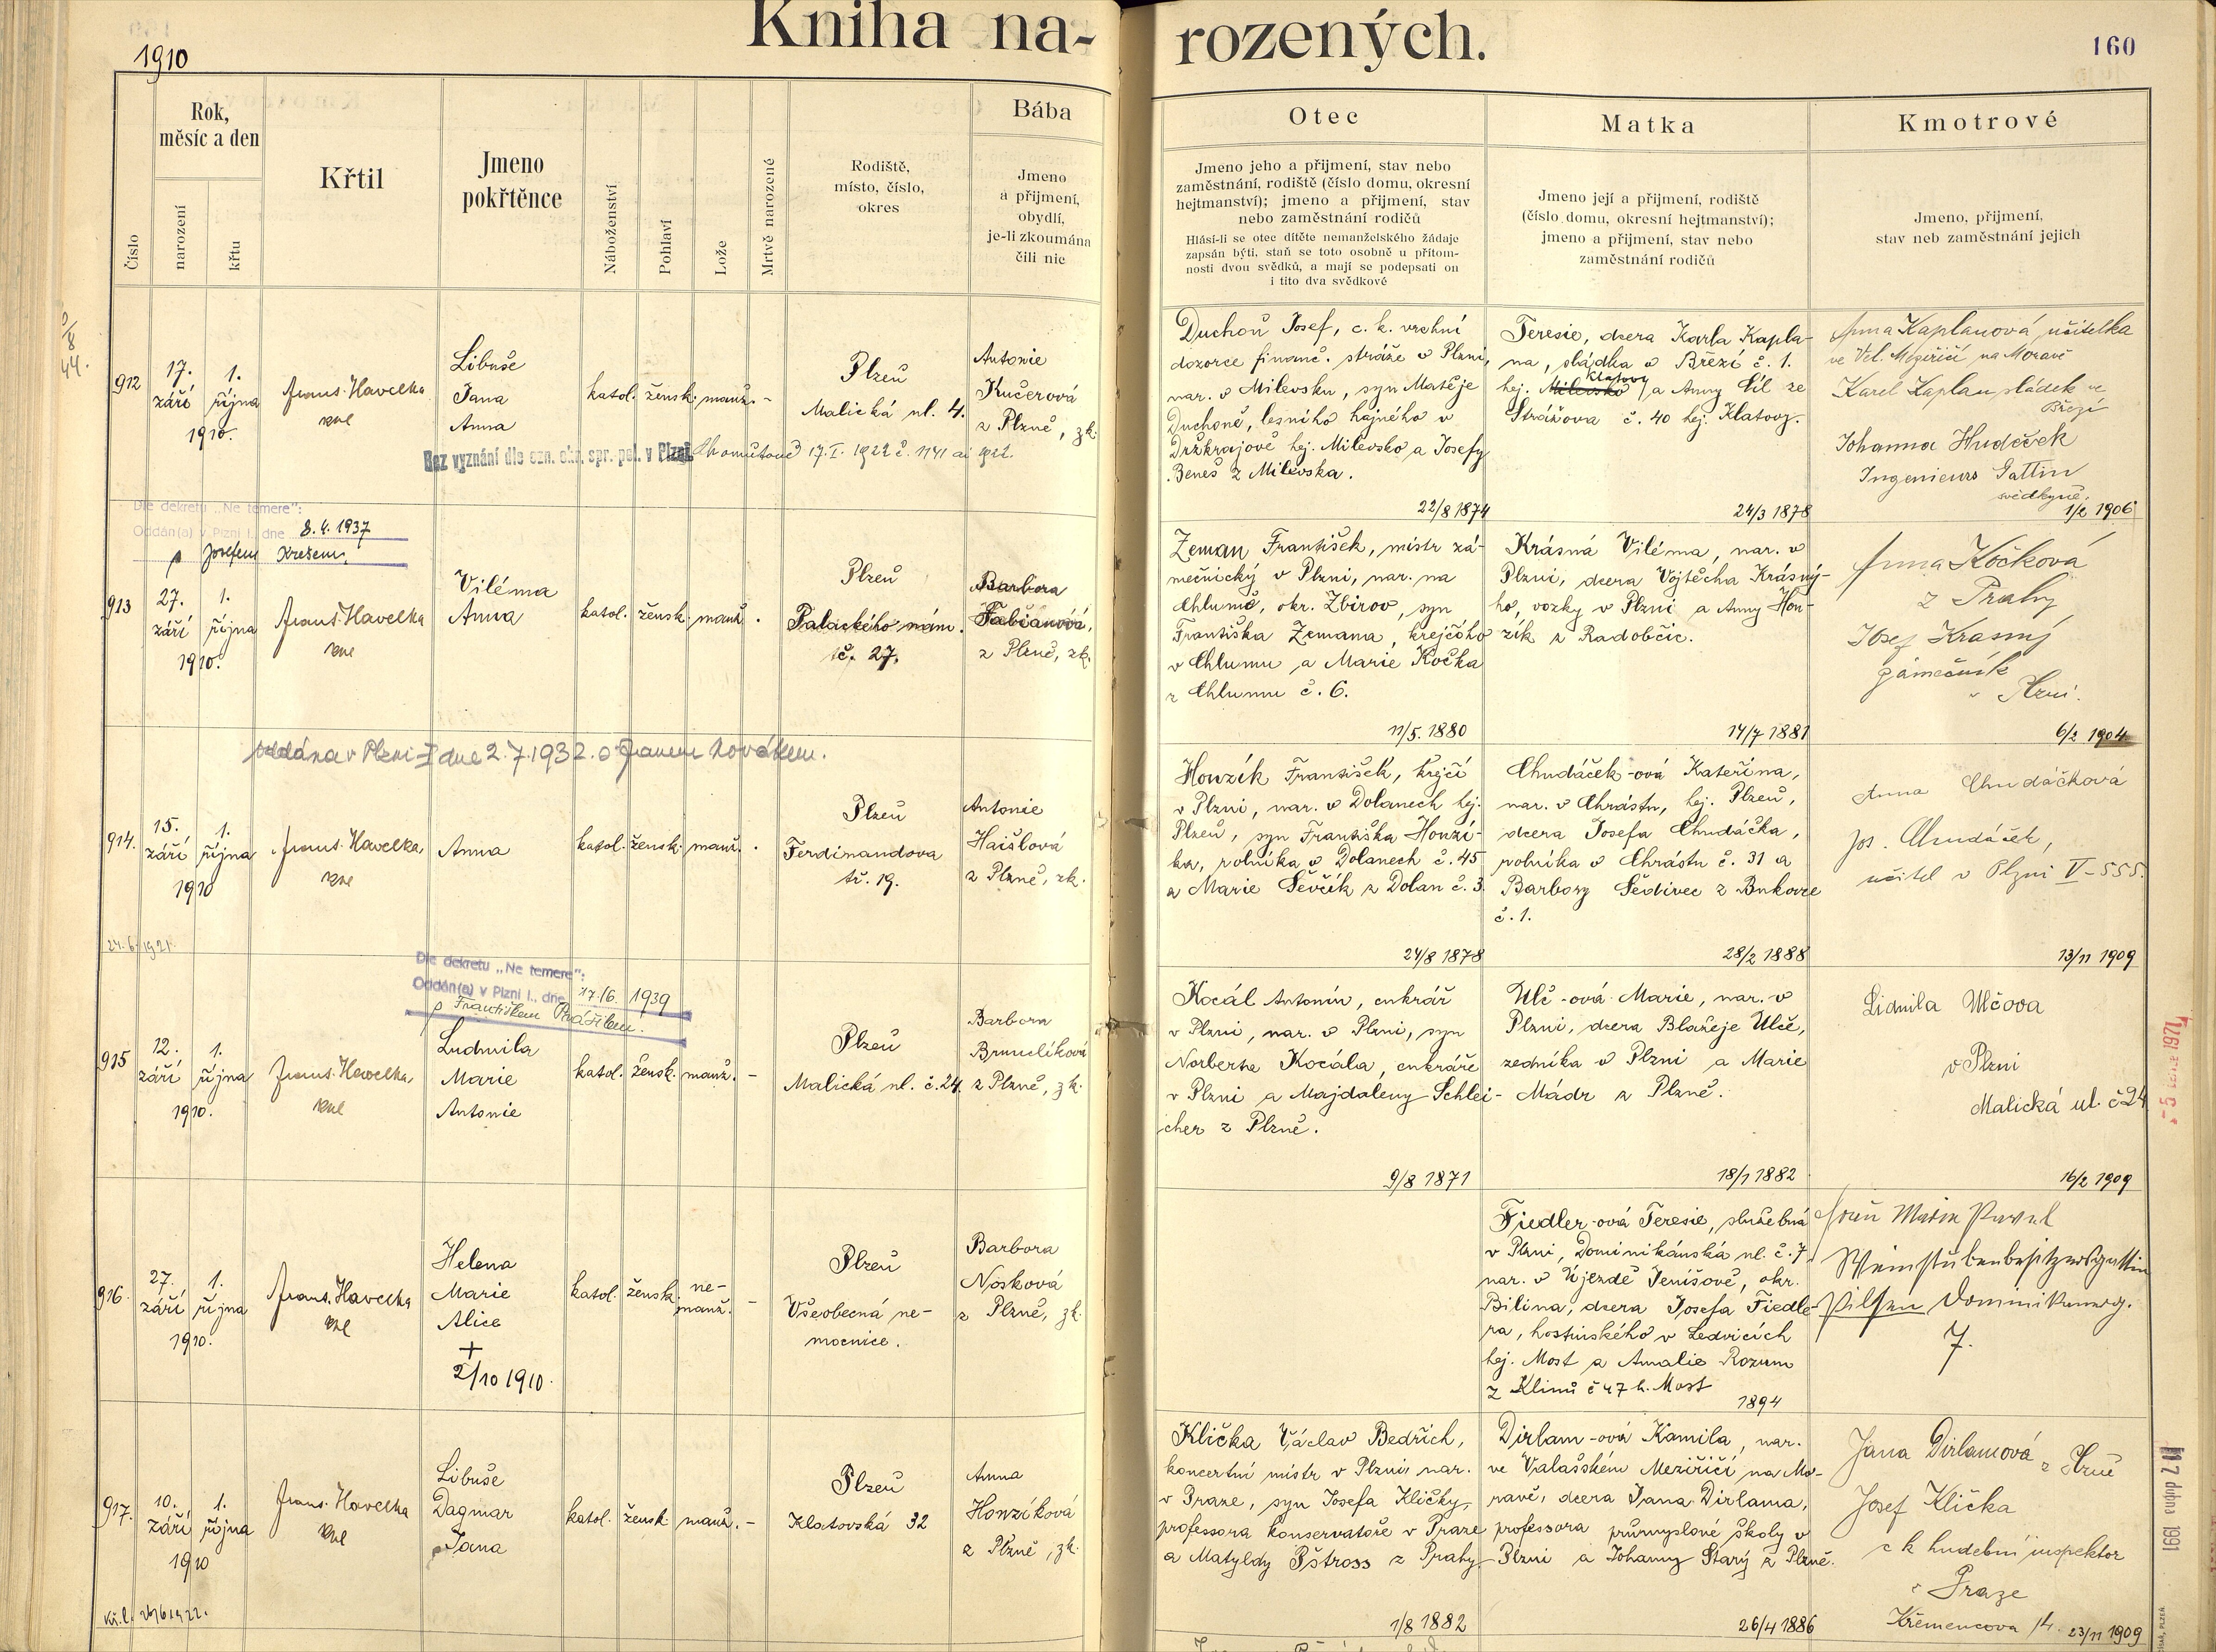 Kniha na-
rozených.
1910
160
Rok,
měsíc a den
narození
křtu
Číslo
Křtil
Jmeno
pokřtěnce
Náboženství
Pohlaví
Lože
Mrtvě narozené
Rodiště,
místo, číslo,
okres
Bába
Jmeno
a přijmení,
obydlí,
je-li zkoumána
čili nic
Otec
Jmeno jeho a přijmení, stav nebo
zaměstnání, rodiště (číslo domu, okresní
hejtmanství); jmeno a přijmení, stav
nebo zaměstnání rodičů
Hlásí-li se otec dítěte nemanželského žádaje
zapsán býti, staň se toto osobně u přítom-
nosti dvou svědků, a mají se podepsati on
i tito dva svědkové
Matka
Jmeno její a přijmení, rodiště
(číslo domu, okresní hejtmanství);
jmeno a přijmení, stav nebo
zaměstnání rodičů
Kmotrové
Jmeno, přijmení,
stav neb zaměstnání jejich
912
17.
září
1.
října
1910.
Frant. Havelka
Libuše
Jana
Anna
katol.
žensk.
manž.
-
Plzeň
Malická ul. 4.
Antonie
Kučerová
z Plzně, zk.
Bez vyznání dle ozn. okr. spr. pol. v Chomutově 17. I. 1922 č. 1141 ai 1922.
Duchoň Josef, c. k. vrchní
dozorce financ. stráže v Plzni,
nar. v Milevsku, syn Matěje
Duchoně, lesního hajného v
Držkrajově hej. Milevsko a Josefy
Beneš z Milevska.
22/8 1874
Teresie, dcera Karla Kapla-
na, sládka v Březí č. 1.
hej. Klatovy a Anny Šíl ze
Strážova č. 40 hej. Klatovy.
24/3 1878
Anna Kaplanová, učitelka
ve Vel. Meziříčí na Moravě
Karel Kaplan sládek ve
Březí
Johanna Hudeček
Ingenieurs Gattin
svědkyně.
1/2 1906
Dle dekretu „Ne temere":
Oddán(a) v Plzni I., dne 8. 4. 1937
s Josefem Krešem.
913
27.
září
1.
října
1910.
Frant. Havelka
Viléma
Anna
katol.
žensk.
manž.
Plzeň
Palackého nám.
č. 27.
Barbora
Fabianová,
z Plzně, zk.
Zeman František, mistr zá-
mečnický v Plzni, nar. na
Chlumě, okr. Zbirov, syn
Františka Zemana, krejčího
v Chlumu a Marie Kočka
z Chlumu č. 6.
11/5. 1880
Krásná Viléma, nar. v
Plzni, dcera Vojtěcha Krásný-
ho, vozky v Plzni a Anny Hon-
zík z Radobčic.
14/7 1881
Anna Kočková
z Prahy
Josef Krasný
zámečník
v Plzni.
6/2 1904
oddána v Plzni-I dne 2.7.1932. s Janem Novákem.
914.
15.
září
1.
října
1910
Frant. Havelka
Anna
katol.
žensk.
manž.
Plzeň
Ferdinandova
tř. 19.
Antonie
Haišlová
z Plzně, zk.
Honzík František, krejčí
v Plzni, nar. v Dolanech hej.
Plzeň, syn Františka Honzí-
ka, rolníka v Dolanech č. 45
a Marie Ševčík z Dolan č. 3.
24/8 1878
Chudáček-ová Kateřina,
nar. v Chrástu, hej. Plzeň,
dcera Josefa Chudáčka,
rolníka v Chrástu č. 31 a
Barbory Šedivec z Bukovce
č. 1.
28/2 1888
Anna Chudáčková
Jos. Chudáček,
učitel v Plzni V-555.
13/11 1909
24.6.1921.
Dle dekretu „Ne temere":
Oddán(a) v Plzni I., dne 17./6. 1939
s Františkem Prášilem.
915
12.
září
1.
října
1910.
Frant. Havelka,
Ludmila
Marie
Antonie
katol.
žensk.
manž.
-
Plzeň
Malická ul. č. 24.
Barbora
Brunclíková
z Plzně, zk.
Kocál Antonín, cukrář
v Plzni, nar. v Plzni, syn
Norberta Kocála, cukráře
v Plzni a Majdaleny Schlei-
cher z Plzně.
9/8 1871
Ulč-ová Marie, nar. v
Plzni, dcera Blažeje Ulče,
zedníka v Plzni a Marie
Mádr z Plzně.
18/1 1882
Lidmila Ulčova
v Plzni
Malická ul. č 24
16/2 1909
916.
27.
září
1.
října
1910.
Frant. Havelka
Helena
Marie
Alice
+
2/10 1910.
katol.
žensk.
ne-
manž.
-
Plzeň
Všeobecná ne-
mocnice.
Barbora
Nosková
z Plzně, zk.
Fiedler-ová Teresie, služebná
v Plzni, Dominikánská ul. č. 7.
nar. v Újezdě Jenišově, okr.
Bilina, dcera Josefa Fiedle-
ra, hostinského v Ledvicích
hej. Most a Amalie Rozum
z Klínů č 47 h. Most
1894
Weinstubenbesitzersgattin
Pilsen
7.
917.
10.
září
1.
října
1910
Frant. Havelka
Libuše
Dagmar
Jana
katol.
žensk.
manž.
-
Plzeň
Klatovská 32
Anna
Honzíková
z Plzně, zk.
Klička Václav Bedřich,
koncertní mistr v Plzni, nar.
v Praze, syn Josefa Kličky,
professora konservatoře v Praze
a Matyldy Pštross z Prahy
1/8 1882
Dirlam-ová Kamila, nar.
ve Valašském Meziříčí na Mo-
ravě, dcera Jana Dirlama,
professora průmyslové školy v
Plzni a Johanny Starý z Plzně.
26/4 1886
Jana Dirlamová z Plzně
Josef Klička
c k hudební inspektor
v Praze
Křemencova 14. 23/11 1909